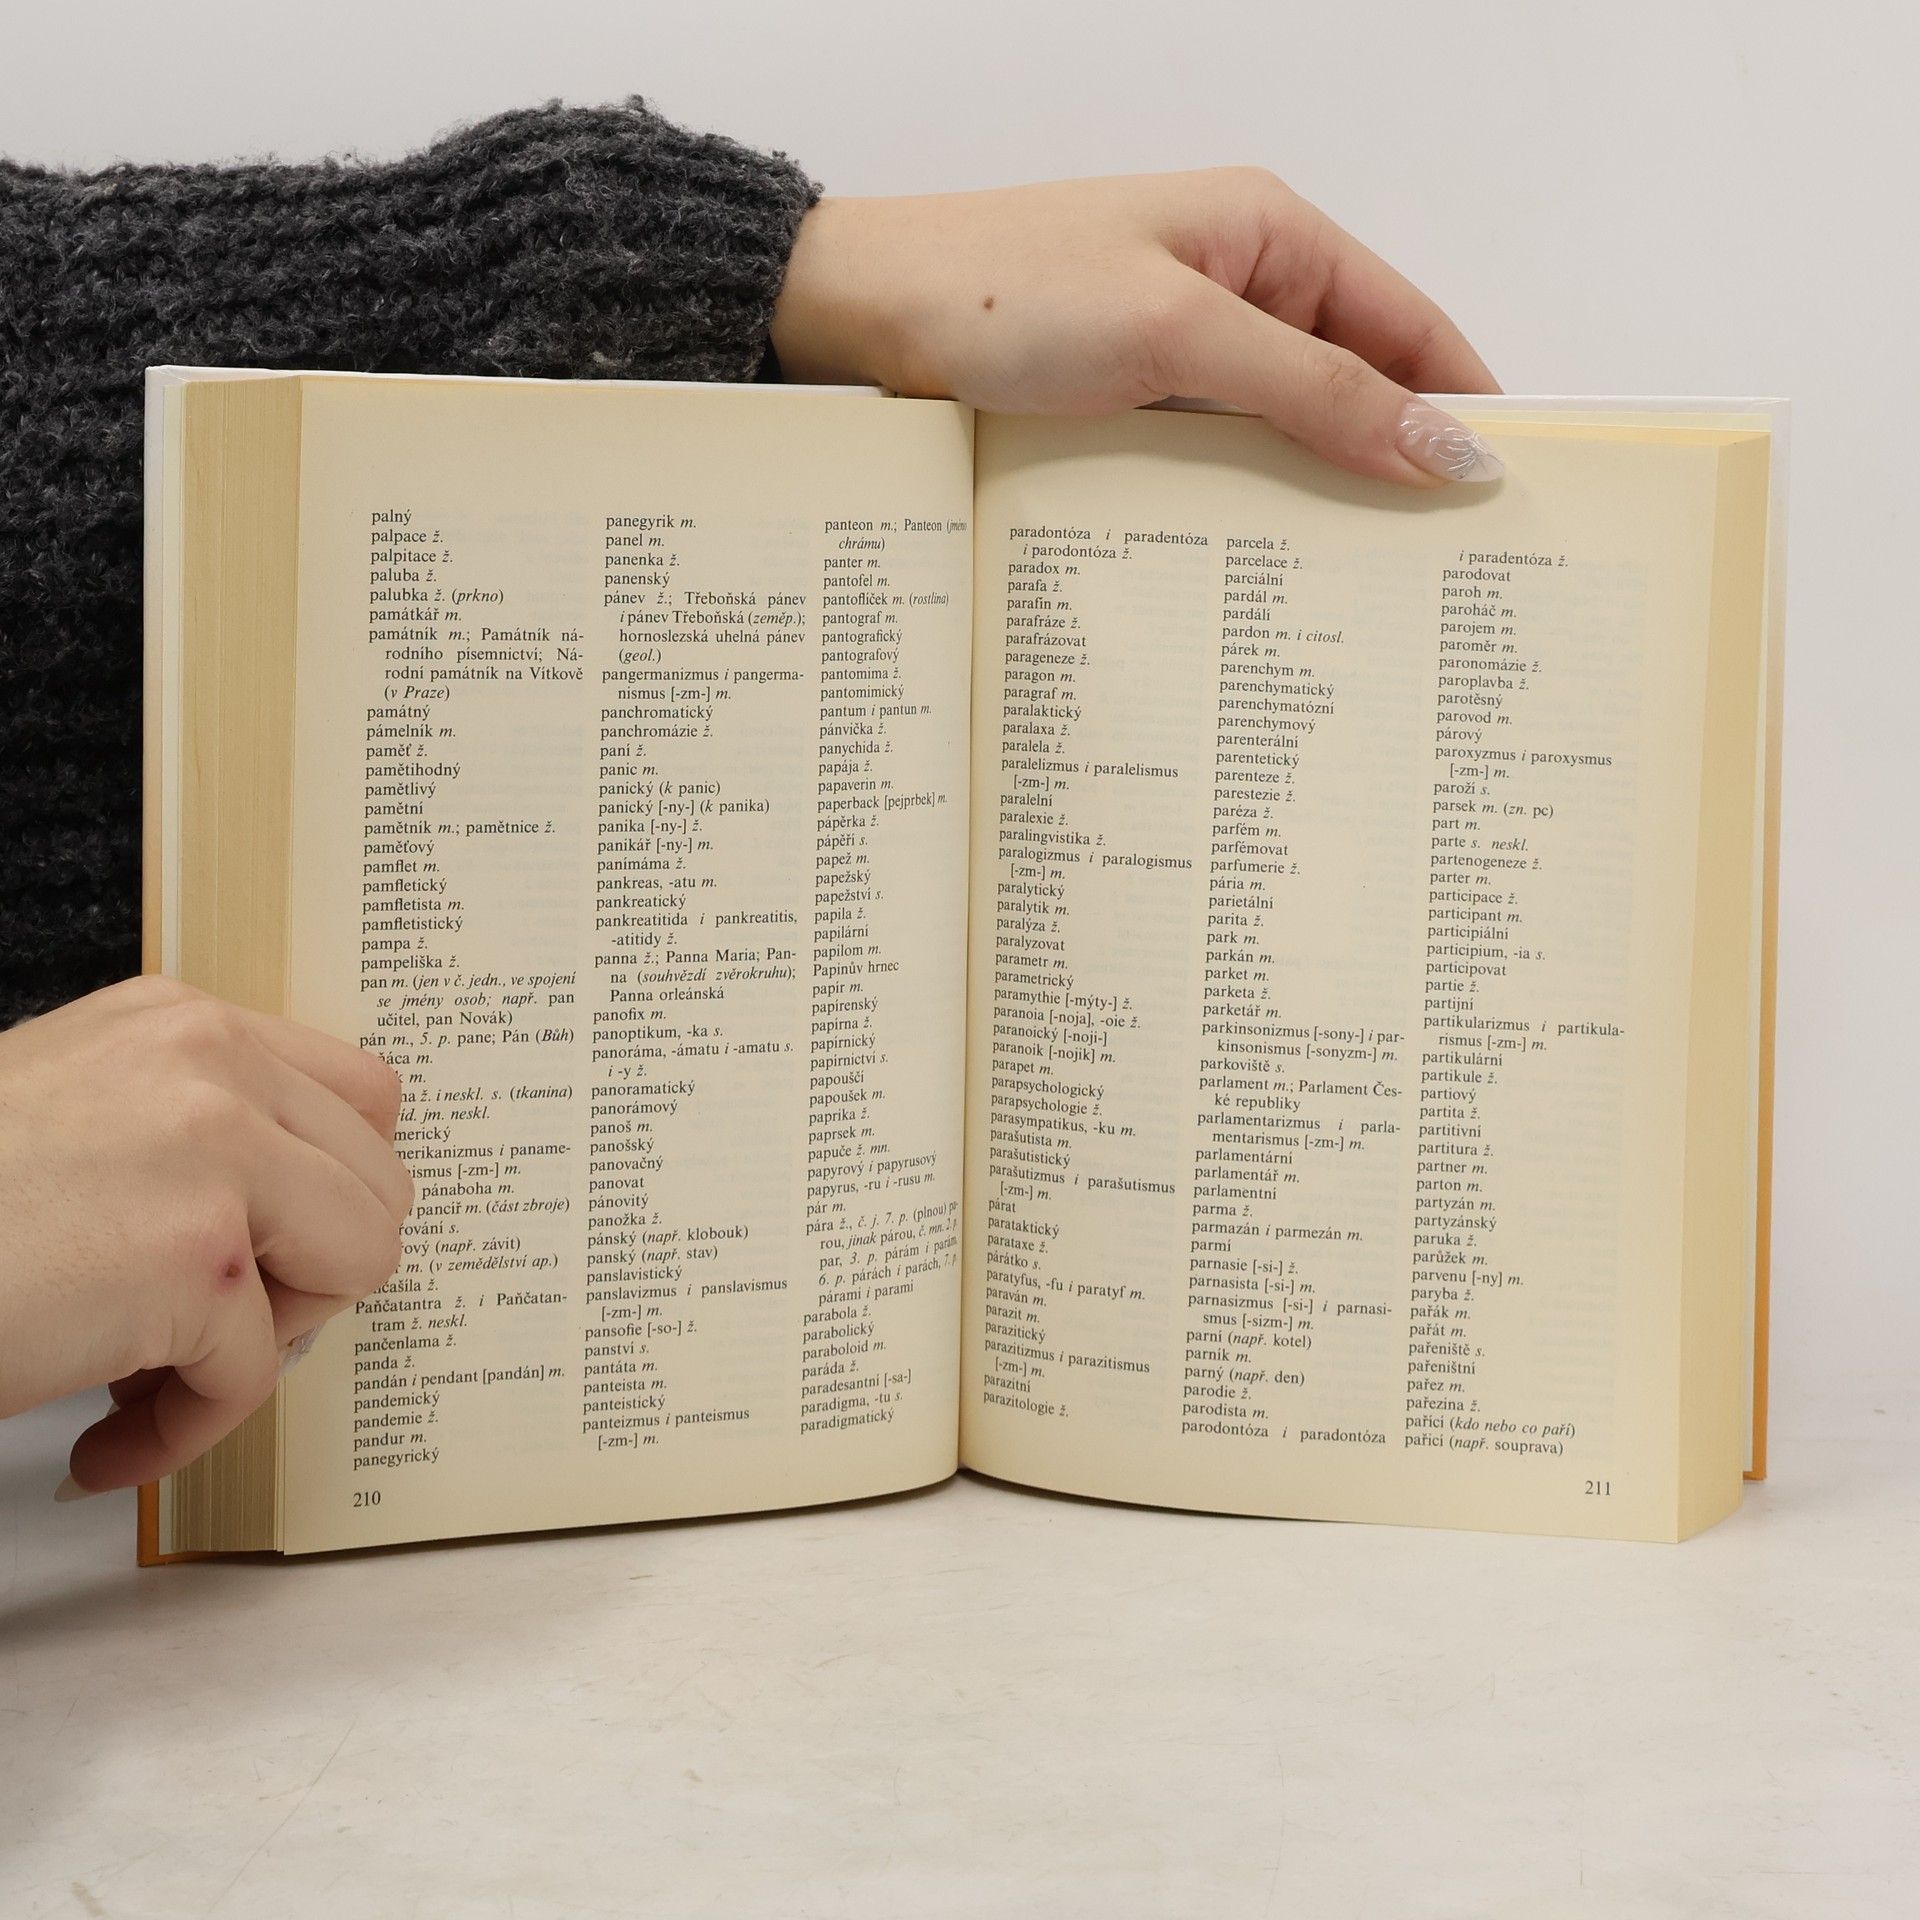 palný
palpace ž.
palpitace ž.
paluba ž.
palubka ž. (prkno)
památkář m.
památník m.; Památník ná-
rodního písemnictví; Ná-
rodní památník na Vítkově
(v Praze)
památný
pámelník m.
paměť ž.
pamětihodný
pamětlivý
pamětní
pamětník m.; pamětnice ž.
paměťový
pamflet m.
pamfletický
pamfletista m.
pamfletistický
pampa ž.
pampeliška ž.
pan m. (jen v č. jedn., ve spojení
se jmény osob; např. pan
učitel, pan Novák)
pán m., 5. p. pane; Pán (Bůh)
m.
m.
ž. i neskl. s. (tkanina)
jm. neskl.
merický
merikanizmus i paname-
ismus [-zm-] m.
pánaboha m.
pancíř m. (část zbroje)
rování s.
(např. závit)
m. (v zemědělství ap.)
ž.
Paňčatantra ž. i Paňčatan-
tram ž. neskl.
pančenlama ž.
panda ž.
pandán i pendant [pandán] m.
pandemický
pandemie ž.
pandur m.
panegyrický
panegyrik m.
panel m.
panenka ž.
panenský
pánev ž.; Třeboňská pánev
i pánev Třeboňská (zeměp.);
hornoslezská uhelná pánev
(geol.)
pangermanizmus i pangerma-
nismus [-zm-] m.
panchromatický
panchromázie ž.
paní ž.
panic m.
panický (k panic)
panický [-ny-] (k panika)
panika [-ny-] ž.
panikář [-ny-] m.
panímáma ž.
pankreas, -atu m.
pankreatický
pankreatitida i pankreatitis,
-atitidy ž.
panna ž.; Panna Maria; Pan-
na (souhvězdí zvěrokruhu);
Panna orleánská
panofix m.
panoptikum, -ka s.
panoráma, -ámatu i -amatu s.
i -y ž.
panoramatický
panorámový
panoš m.
panošský
panovačný
panovat
pánovitý
panožka ž.
pánský (např. klobouk)
panský (např. stav)
panslavistický
panslavizmus i panslavismus
[-zm-] m.
pansofie [-so-] ž.
panství s.
pantáta m.
panteista m.
panteistický
panteizmus i panteismus
[-zm-] m.
panteon m.; Panteon (jméno
chrámu)
panter m.
pantofel m.
pantoflíček m. (rostlina)
pantograf m.
pantografický
pantografový
pantomima ž.
pantomimický
pantum i pantun m.
pánvička ž.
panychida ž.
papája ž.
papaverin m.
paperback [pejprbek] m.
pápěrka ž.
pápěří s.
papež m.
papežský
papežství s.
papila ž.
papilární
papilom m.
Papinův hrnec
papír m.
papírenský
papírna ž.
papírnický
papírnictví s.
papouščí
papoušek m.
paprika ž.
paprsek m.
papuče ž. mn.
papyrový i papyrusový
papyrus, -ru i -rusu m.
pár m.
pára ž., č. j. 7. p. (plnou) pa-
rou, jinak párou, č. mn. 2. p.
par, 3. p. párám i parám,
6. p. párách i parách, 7. p.
párami i parami
parabola ž.
parabolický
paraboloid m.
paráda ž.
paradesantní [-sa-]
paradigma, -tu s.
paradigmatický
210
paradontóza i paradentóza
i parodontóza ž.
paradox m.
parafa ž.
parafín m.
parafráze ž.
parafrázovat
parageneze ž.
paragon m.
paragraf m.
paralaktický
paralaxa ž.
paralela ž.
paralelizmus i paralelismus
[-zm-] m.
paralelní
paralexie ž.
paralingvistika ž.
paralogizmus i paralogismus
[-zm-] m.
paralytický
paralytik m.
paralýza ž.
paralyzovat
parametr m.
parametrický
paramythie [-mýty-] ž.
paranoia [-noja], -oie ž.
paranoický [-noji-]
paranoik [-nojik] m.
parapet m.
parapsychologický
parapsychologie ž.
parasympatikus, -ku m.
parašutista m.
parašutistický
parašutizmus i parašutismus
[-zm-] m.
párat
parataktický
parataxe ž.
párátko s.
paratyfus, -fu i paratyf m.
paraván m.
parazit m.
parazitický
parazitizmus i parazitismus
[-zm-] m.
parazitní
parazitologie ž.
parcela ž.
parcelace ž.
parciální
pardál m.
pardálí
pardon m. i citosl.
párek m.
parenchym m.
parenchymatický
parenchymatózní
parenchymový
parenterální
parentetický
parenteze ž.
parestezie ž.
paréza ž.
parfém m.
parfémovat
parfumerie ž.
pária m.
parietální
parita ž.
park m.
parkán m.
parket m.
parketa ž.
parketář m.
parkinsonizmus [-sony-] i par-
kinsonismus [-sonyzm-] m.
parkoviště s.
parlament m.; Parlament Čes-
ké republiky
parlamentarizmus i parla-
mentarismus [-zm-] m.
parlamentární
parlamentář m.
parlamentní
parma ž.
parmazán i parmezán m.
parmí
parnasie [-si-] ž.
parnasista [-si-] m.
parnasizmus [-si-] i parnasi-
smus [-sizm-] m.
parní (např. kotel)
parník m.
parný (např. den)
parodie ž.
parodista m.
parodontóza i paradontóza
i paradentóza ž.
parodovat
paroh m.
paroháč m.
parojem m.
paroměr m.
paronomázie ž.
paroplavba ž.
parotěsný
parovod m.
párový
paroxyzmus i paroxysmus
[-zm-] m.
paroží s.
parsek m. (zn. pc)
part m.
parte s. neskl.
partenogeneze ž.
parter m.
participace ž.
participant m.
participiální
participium, -ia s.
participovat
partie ž.
partijní
partikularizmus i partikula-
rismus [-zm-] m.
partikulární
partikule ž.
partiový
partita ž.
partitivní
partitura ž.
partner m.
parton m.
partyzán m.
partyzánský
paruka ž.
parůžek m.
parvenu [-ny] m.
paryba ž.
pařák m.
pařát m.
pařeniště s.
pařeništní
pařez m.
pařezina ž.
pařící (kdo nebo co paří)
pařicí (např. souprava)
211